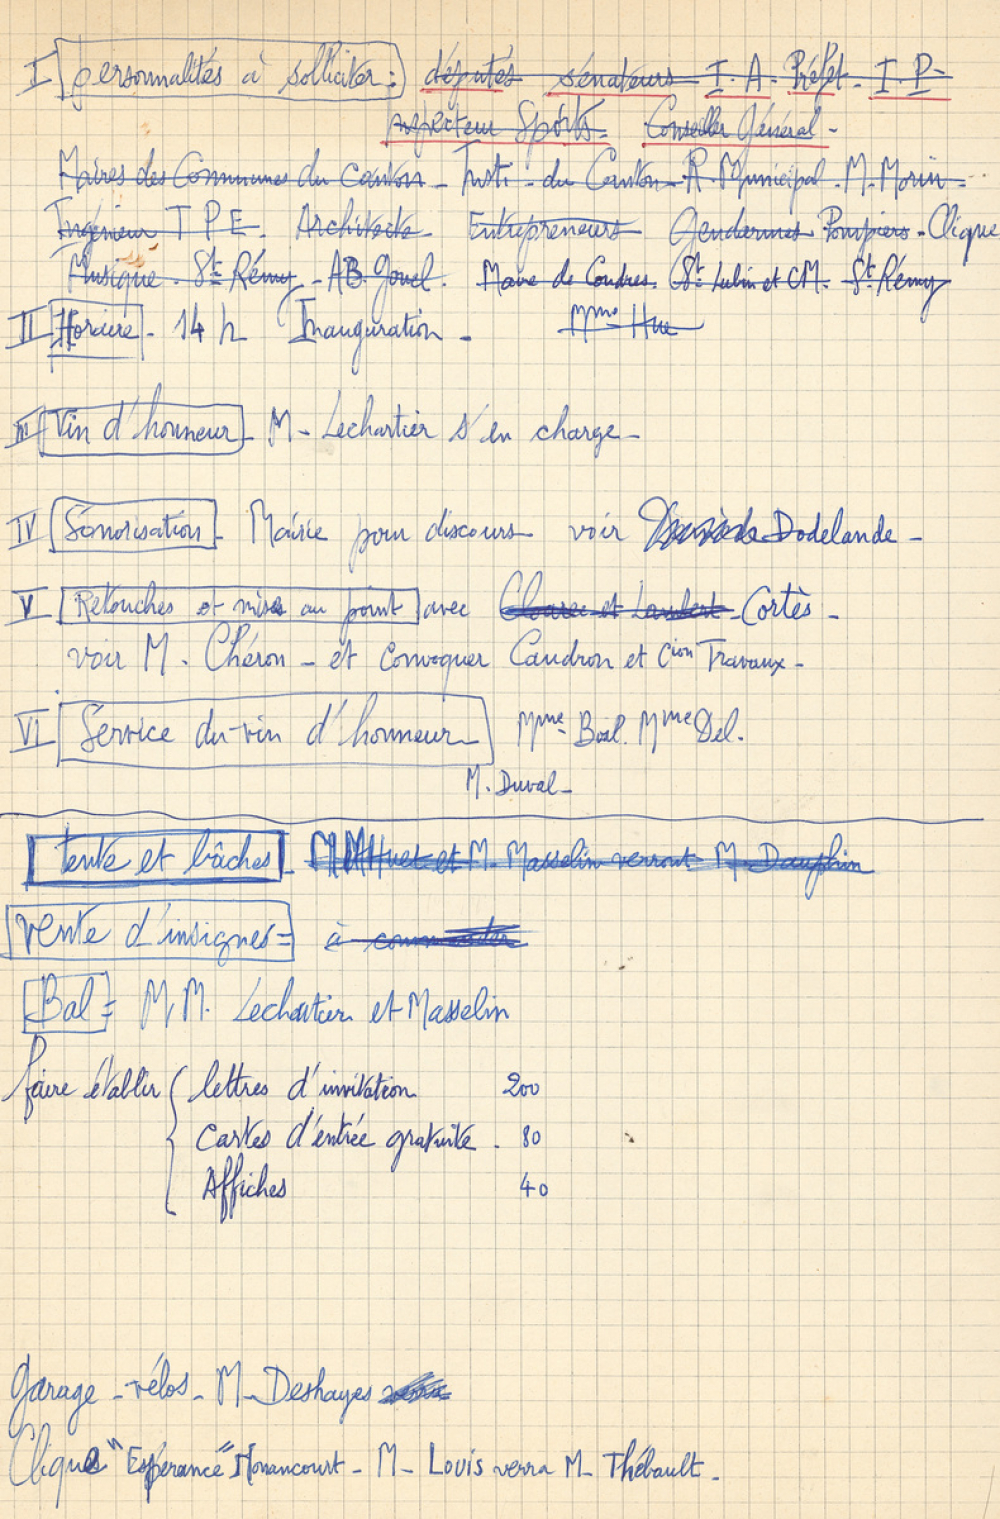 I personnalités à solliciter = députés sénateurs - I. A - Préfet - I. P -
Inspecteur Sports. Conseiller Général -
Maires des Communes du canton - Insti. du Canton - R. Municipal - M. Morin -
Ingénieur T P E. Architecte - Entrepreneurs Gendarmes Pompiers - Clique
Musique - St Rémy - AB. Gouel. Maire de Condres. St Lubin et CM - St Rémy
II Horaire - 14 h Inauguration - Mme Hue
III Vin d'honneur - M - Lechartier s'en charge -
IV Sonorisation - Mairie pour discours - voir Dodelande -
V Retouches et mises au point avec Cortès -
voir M. Chéron - et convoquer Caudron et Cion Travaux -
VI Service du vin d'honneur - Mme Boil. Mme Del.
M. Duval -
tente et bâches - MM Huet et M. Masselin verront M Dauphin
vente d'insignes = à commander
Bal = MM. Lechartier et Masselin
faire établir { lettres d'invitation 200
Cartes d'entrée gratuite - 80
Affiches 40
Garage - vélos - M - Deshayes verra
Clique "Espérance" Nonancourt - M - Louis verra M - Thébault -